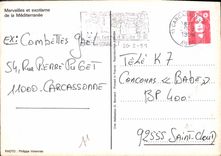 Merveilles et exotisme
de la Méditerranée
ex: Combettes Gaël
54, Rue Pierre Puget
11000 CARCASSONNE
Télé K7
Concours « Babe »
BP 400
92555 Saint-Cloud
PHOTO : Philippe